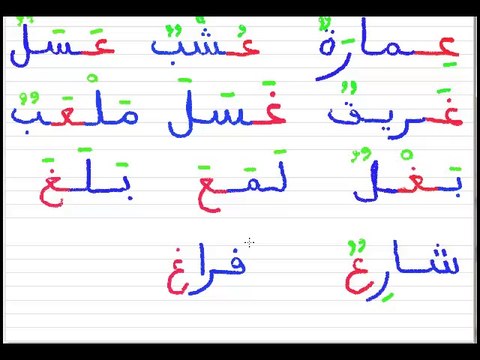 عِمارَةٌ عُشْبٌ عَسَلٌ
غَريقٌ غَسَلَ مَلْعَبٌ
بَغْلٌ لَمَعَ بَلَغَ
شارِعٌ فراغ